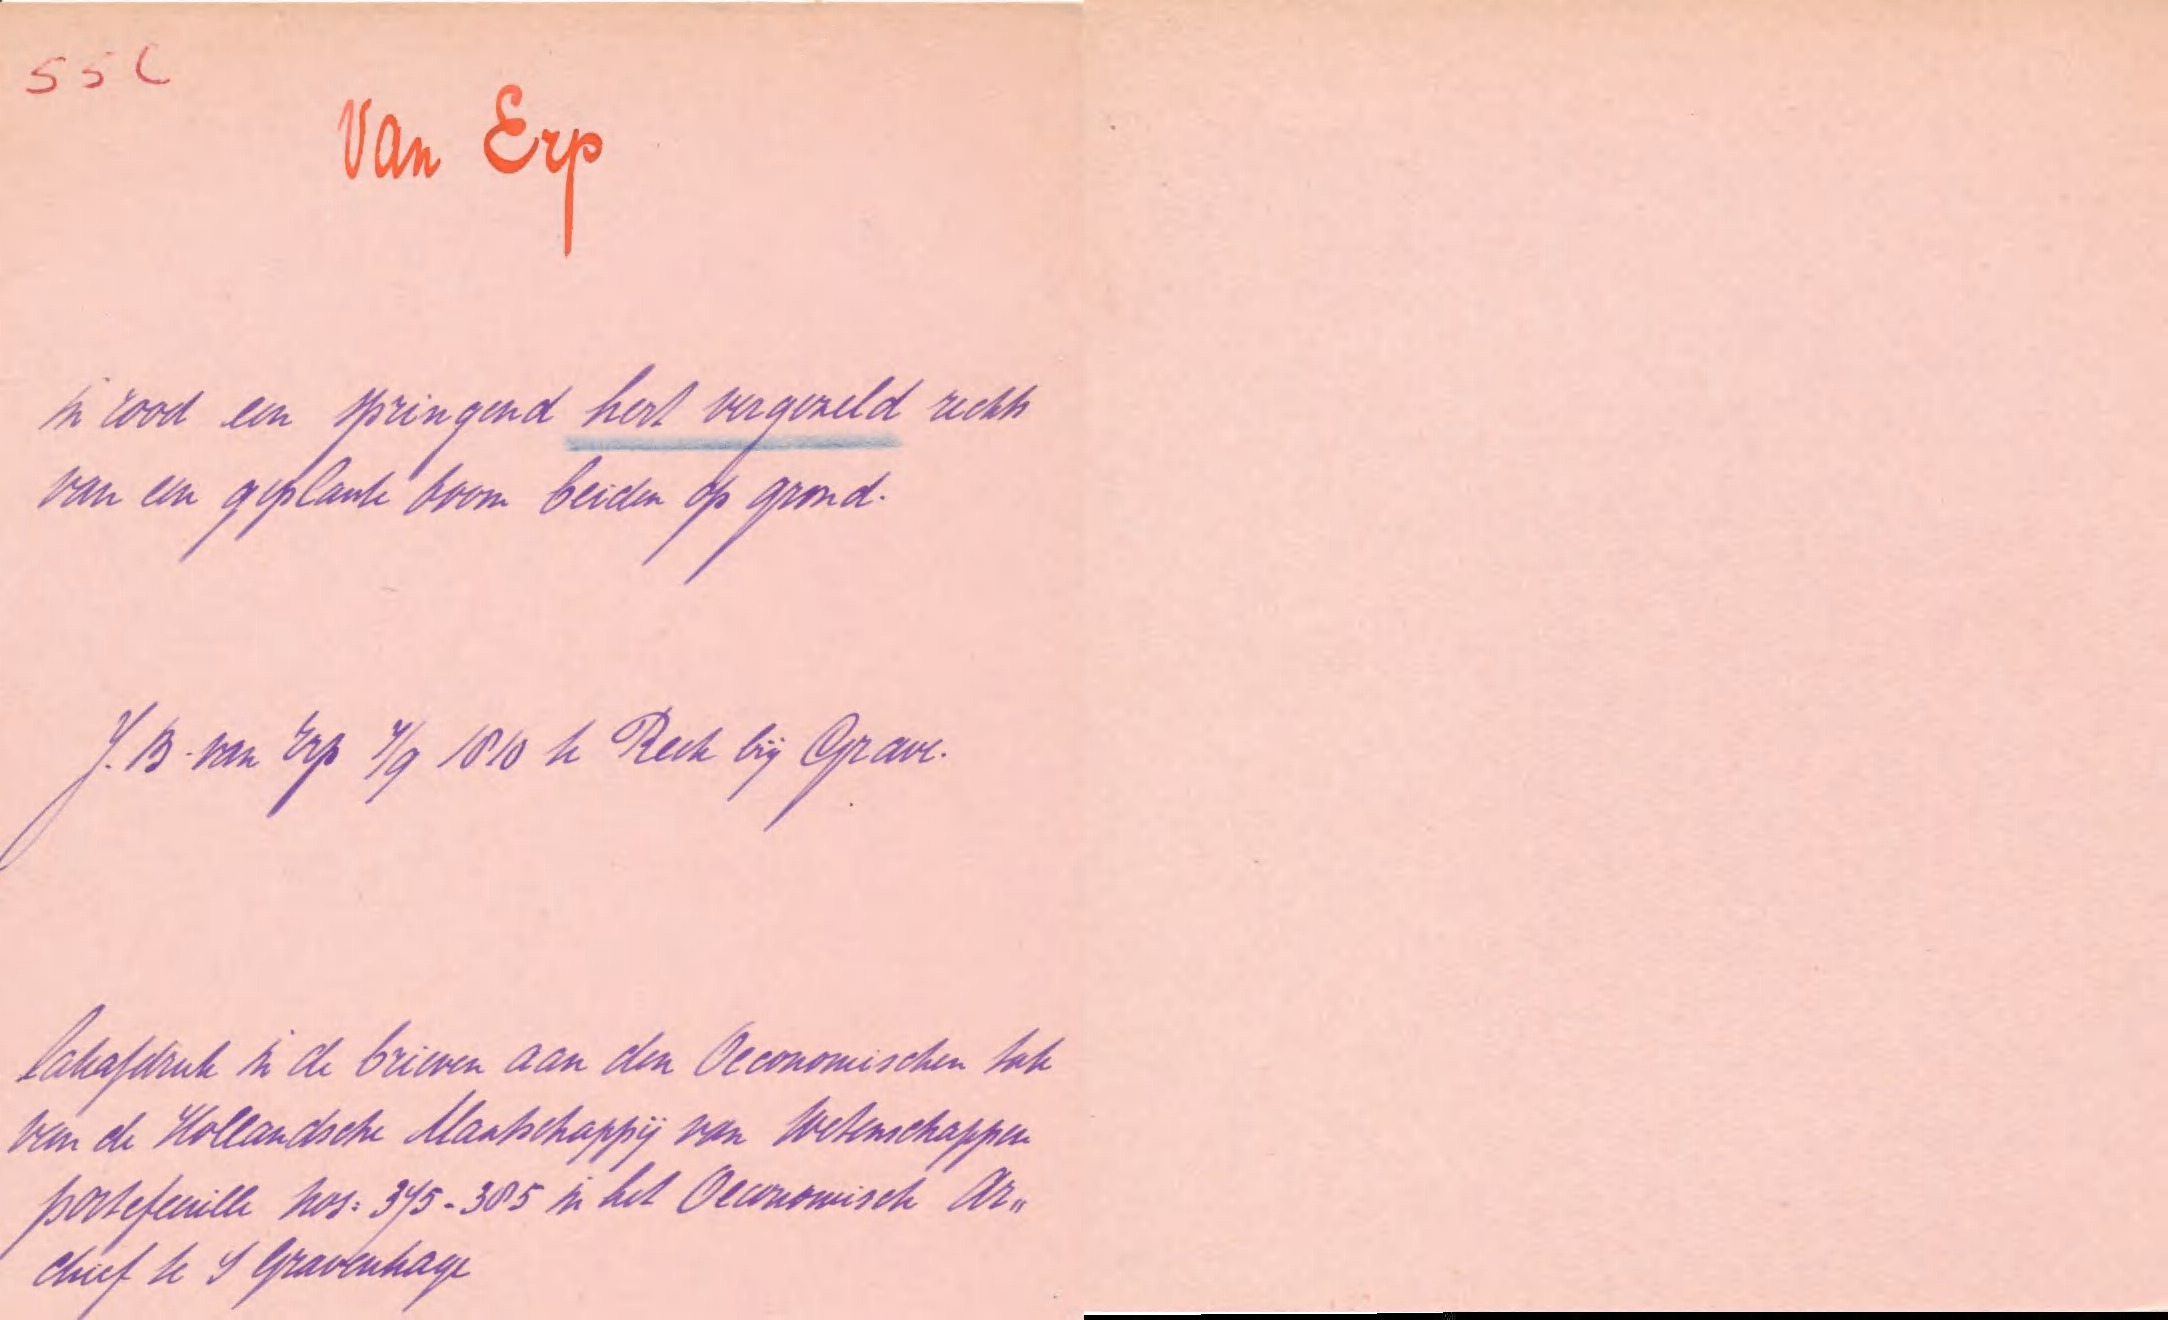 55C
Van Erp
in rood een springend hert vergezeld rechts
van een geplante boom beiden op grond.
J. B. van Erp 7/9 1810 te Reek bij Grave.
Lakafdruk in de brieven aan den Oeconomischen tak
van de Hollandsche Maatschappij van Wetenschappen
portefeuille nos: 375-385 in het Oeconomisch Ar„
chief te S Gravenhage